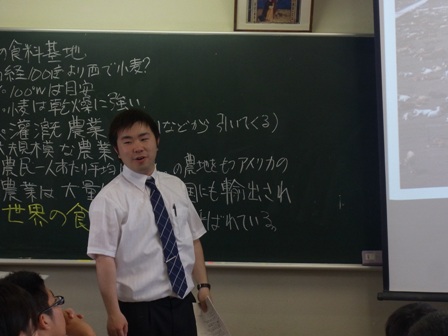 の食料基地
経100度より西で小麦?
100°Wは目安
小麦は乾燥に強い
灌漑農業 などから引いてくる)
大規模な農業
農民一人あたり平均 の農地をもつアメリカの
農業は大量 国にも輸出され
世界の食 ばれている。